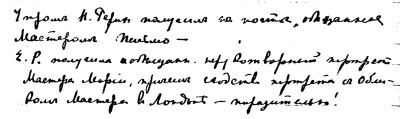 Утром Н. Рерих получил на почте, обещанное
Мастером письмо —
Е. Р. получила обещанн. нерукотворный портрет
Мастера Мории, причем сходство портрета с Обли-
ком Мастера в Лондоне — поразительно!